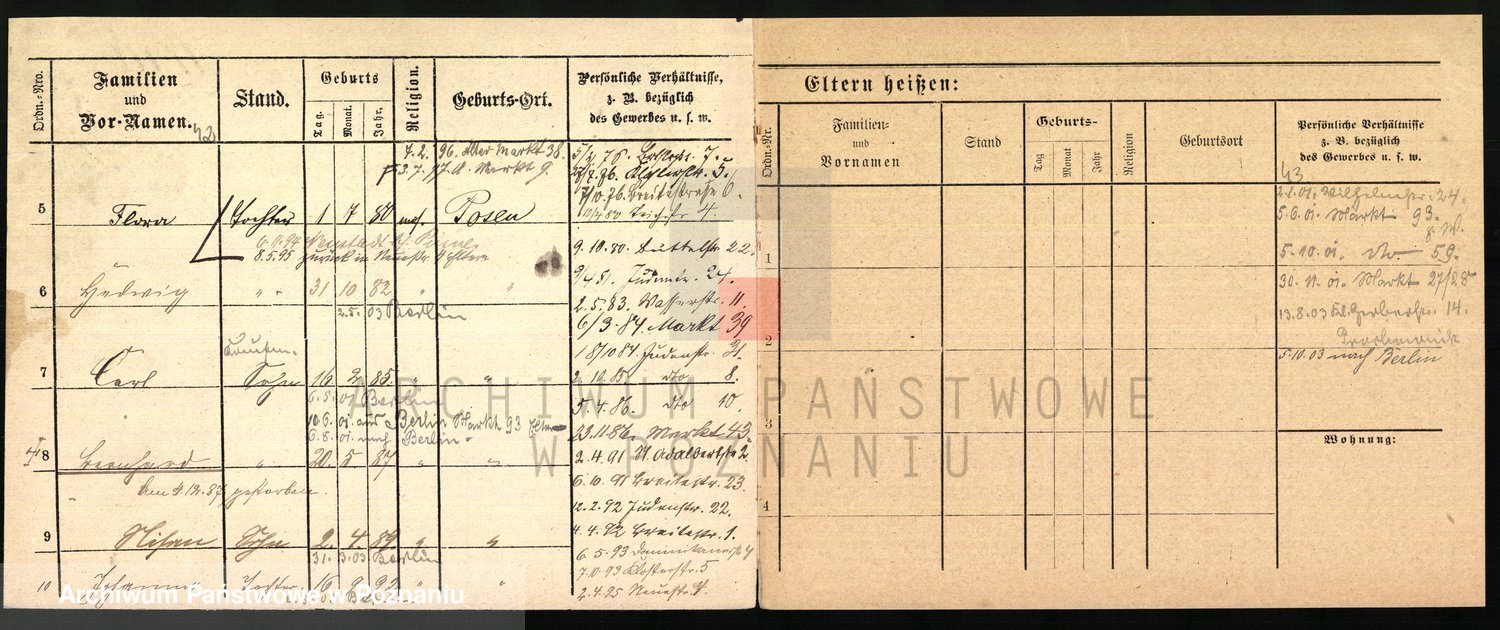 Ordn.-Nro.
Familien
und
Vor-Namen.
Stand.
Geburts
Tag.
Monat.
Jahr.
Religion.
Geburts-Ort.
Persönliche Verhältnisse,
z. B. bezüglich
des Gewerbes u. s. w.
42
7.2. 96. Alter Markt 38.
3.7. 97. A. Markt 9.
5 Flora Tochter 1 7 80 mos. Posen
8.5.95 zurück in Neuestr. 4 Eltern
6 Hedwig " " 31 10 82 " "
2.5. 03 Berlin
7 Carl Sohn 16 2 85. "
6.5. 01 Berlin
10.6. 01. aus Berlin Markt 93 Eltern
6.8. 01. nach Berlin
8 Bernhard " 20 5 87 " "
den 4.12.87 gestorben.
9 Nisan Sohn 2. 4. 89. " "
31. 3. 03 Berlin
10 Johanna Tochter 16 9 92 " "
7/10. 76. Breitestraße 6.
9. 10. 80. Büttelstr 22.
9/4 81. Judenstr. 24.
2. 5. 83. Wasserstr. 11.
6/3. 84. Markt 39
18/10 84. Judenstr. 31.
dto 8.
5. 4. 86. dto 10.
23. 11. 86. Markt 43.
2. 4. 91 St. Adalbertstr 2.
6. 10. 91 Breitestr. 23.
12. 2. 92 Judenstr. 22.
4. 4. 92 Breitestr. 1.
6. 5. 93 Dominikanerstr 4
7. 10. 93 Klosterstr. 5
2. 4. 95 Neuestr. 4.
Eltern heißen:
Ordn.-Nr.
Familien-
und
Vornamen
Stand
Geburts-
Tag
Monat
Jahr
Religion
Geburtsort
Persönliche Verhältnisse
z. B. bezüglich
des Gewerbes u. s. w.
43
2.1. 01. Wilhelmstr. 24.
5.6. 01. Markt 93.
1
5. 10. 01. dto 59.
30. 11. 01. Markt 27/28
13. 8. 03 Kl. Gerberstr. 14.
2
5. 10. 03 nach Berlin
3
Wohnung:
4
ARCHIWUM PAŃSTWOWE
W POZNANIU
Archiwum Państwowe w Poznaniu